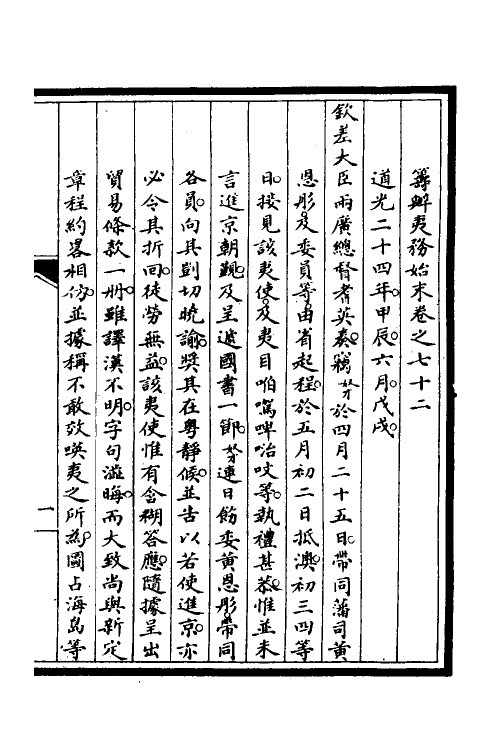 籌辦夷務始末卷之七十二
道光二十四年。甲辰。六月。戊戌。
欽差大臣兩廣總督耆英奏。竊奴才於四月二十五日。帶同藩司黃
恩彤。及委員等。由省起程。於五月初二日抵澳。初三四等
日。接見該夷使。及夷目咱嗎啤冶吱等。執禮甚恭。惟並未
言進京朝覲。及呈遞國書一節。奴才連日飭委黃恩彤。帶同
各員。向其剴切曉諭。獎其在粵靜候。並告以若使進京。亦
必令其折回。徒勞無益。該夷使惟有含糊答應。隨據呈出
貿易條款一冊。雖譯漢不明。字句澀晦。而大致尚與新定
章程約畧相仿。並據稱不敢效𠸄夷之所為。圖占海島等
一